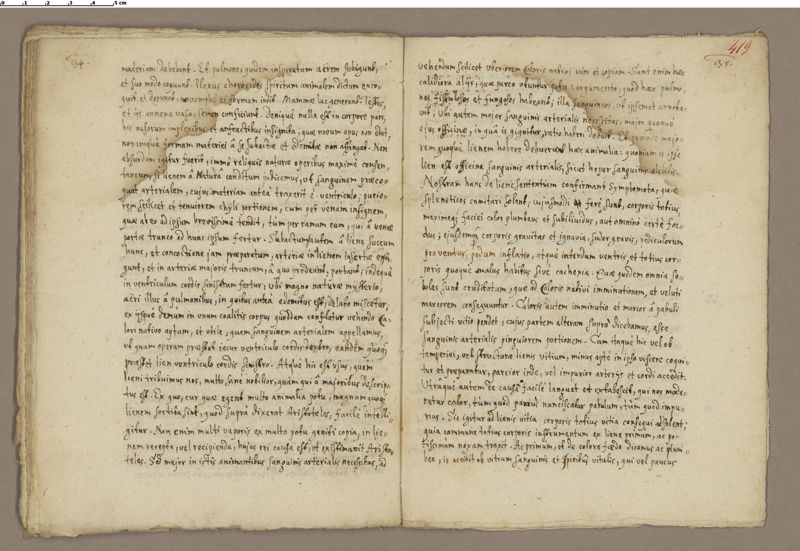 0 1 2 3 4 5 cm
34.
materiam debebunt. Et pulmones quidem inspiratum aërem subigunt,
et suo modo coquunt. Plexus choroeides spiritum animalem dictum
et formam indit. Mammae lac generant. Testes,
et iis annexa vasa, semen conficiunt. Denique nulla est in corpore pars,
his vasorum implexibus et anfractibus insignita, quae novum opus non det,
novamque formam materiei a se subactae et non affingat. Non
absurdum igitur fuerit, immo reliquis naturae operibus maxime consen-
taneum, si lienem à Naturâ conditum dicemus, ut sanguinem praeco-
quat arterialem, cujus materiam antea traxerit è ventriculo; purio-
rem scilicet et tenuiorem chyli portionem, cum per venam insignem,
quae ab eo ad ipsum brevissimè tendit, tum per ramum eum, qui à venae
portae trunco ad hunc ipsum fertur. Subactum autem à liene succum
hunc, et concoctione jam praeparatum, arteriae in lienem insertae
gunt, et in arteriae majoris truncum, à quo prodeunt, portant; indeque
in ventriculum cordis sinistrum fertur, ubi magno naturae mysterio,
aëri illuc à pulmonibus, in quibus antea edomitus est, delato miscetur,
ex iisque demum in unum coalitis corpus quoddam conflatur vehendo Ca-
lori nativo aptum, et utile, quem sanguinem arterialem appellamus,
ut quam operam praestat jecur ventriculo cordis dextro, eandem quoque
praestet lien ventriculo cordis sinistro. Atque hic est usus, quem
lieni tribuimus nos, multo sane nobilior, quam qui à majoribus descrip-
tus est. Ex quo, cur quae egent multo animalia potu, magnum quoque
lienem sortita sint, quod supra dixerat Aristoteles, facile intelli-
gitur. Non enim multi vaporis ex multo potu geniti copia, in lie-
nem recepta, vel recipienda, hujus rei causa est, ut existimavit Aristo-
teles. Sed major in istis animantibus sanguinis arterialis necessitas, ad
419
35.
vehendum scilicet uberiorem Caloris nativi vim et copiam. Sunt enim haec
calidiora aliis, quae parco utuntur potu; argumento, quod haec pulmo-
nes fistulosos et fungosos habeant; illa sanguineos, ut ipsemet annota-
vit. Ubi autem major sanguinis arterialis necessitas, major quoque
ejus officina, in quâ is gignitur, haberi debuit. Et proinde majo-
rem quoque lienem habere debuerunt haec animalia; quoniam is ipse
lien est officina sanguinis arterialis, sicut hepar sanguinis
Nostram hanc de liene sententiam confirmant Symptomata, quae
spleneticos comitari solent, cujusmodi ferè sunt, corporis totius,
maximeque faciei color plumbeus et sublividus, aut omnino certè foe-
dus; ejusdemque corporis gravitas et ignavia, sudor gravis, pediculorum
proventus, pedum inflatio, atque interdum ventris et totius cor-
poris quoque malus habitus sive cachexia. Quae quidem omnia so-
boles sunt cruditatum, quae ad Caloris nativi imminutionem, et veluti
marcorem consequuntur. Caloris autem imminutio et marcor à pabuli
subjecti vitio pendet; cujus partem alteram supra dicebamus, esse
sanguinis arterialis pinguiorem portionem. Cum itaque hic vel ob
temperiei, vel structurae lienis vitium, minus aptè in ipso viscere coqui-
tur et praeparatur, parcior inde, vel impurior arteriis et cordi accedit.
Utraque autem de causâ facilè languet et extabescit, qui nos mode-
ratur calor, tum quod parcius nanciscatur pabulum, tum quod impu-
rius. Sic igitur ad lienis vitia corporis totius vitia consequi solent;
quia commune totius corporis instrumentum ex liene primum, ac po-
tissimum noxam traxit. Ac primum, ut de colore foedo dicamus ac plum-
beo, is accedit ob vitium sanguinis et spiritus vitalis, qui vel paucus